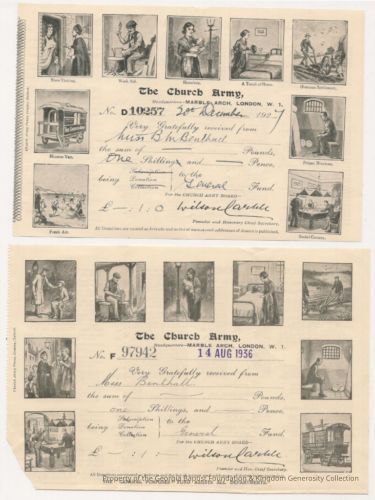 Slum Visiting.
Work Aid.
Homeless.
A Touch of Home.
Overseas Settlement.
The Church Army,
Headquarters—MARBLE ARCH, LONDON, W. 1.
No. D 10257 20th December 1927
Very Gratefully received from
Miss B M Benthall
the sum of — Pounds,
One Shillings and — Pence,
being Subscription Donation Collection to the General Fund.
For the CHURCH ARMY BOARD—
£ — : 1 : 0 Wilson Carlile
Founder and Honorary Chief Secretary.
Mission Van.
Prison Missions.
Fresh Air.
Social Centres.
The Church Army,
Headquarters—MARBLE ARCH, LONDON, W. 1.
No. F 97942 14 AUG 1936
Very Gratefully received from
Miss Benthall
the sum of — Pounds,
one Shillings, and — Pence,
being Subscription Donation Collection to the General Fund.
For the CHURCH ARMY BOARD—
£ — : 1 : 0 Wilson Carlile
Founder and Hon. Chief Secretary.
Property of the Georgia Baptist Foundation & Kingdom Generosity Collection
THE "GENERAL PURPOSES" FUND ASSISTS ALL DEPARTMENTS.